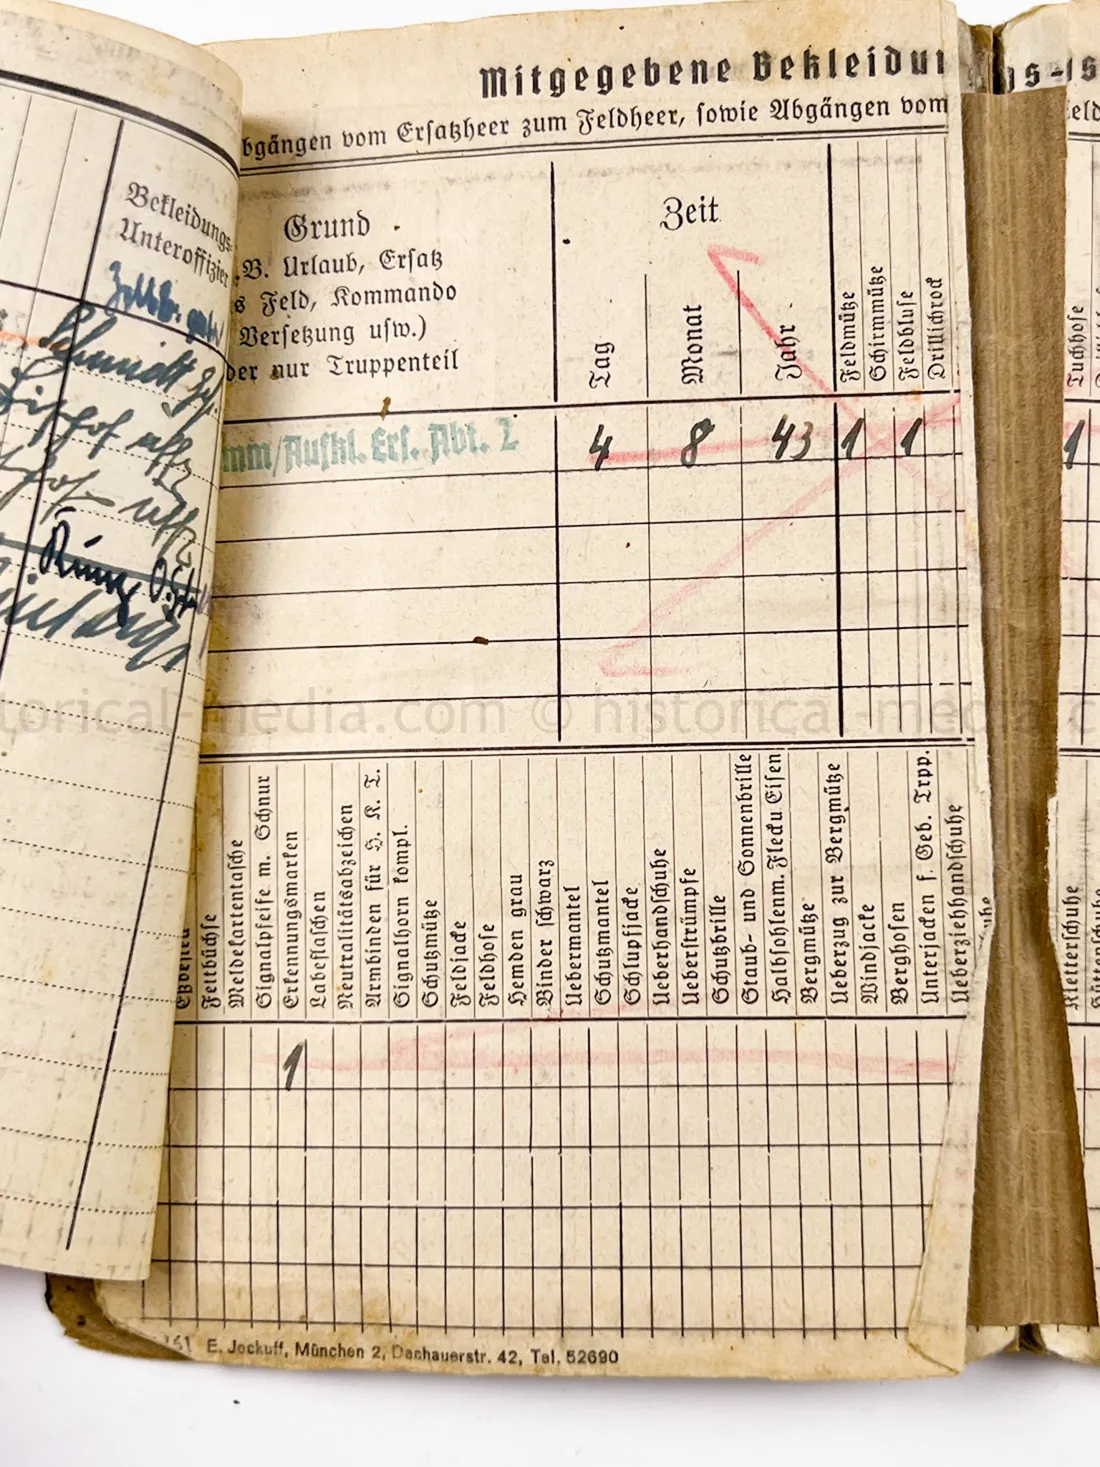 Mitgegebene Bekleidu
gs-
bgängen vom Ersatzheer zum Feldheer, sowie Abgängen vom
Bekleidungs-
Unteroffizier
Grund
.B. Urlaub, Ersatz
s Feld, Kommando
Versetzung usw.)
der nur Truppenteil
Zeit
Tag
Monat
Jahr
Feldmütze
Schirmmütze
Feldbluse
Drillichrock
Tuchhose
Schmidt
mm/Aufkl. Ers. Abt. 2
4 8 43 1 1 1
Eßbesteck
Fettbüchse
Meldekartentasche
Signalpfeife m. Schnur
Erkennungsmarken
Labeflaschen
Neutralitätsabzeichen
Armbinden für H. K. T.
Signalhorn kompl.
Schutzmütze
Feldjacke
Feldhose
Hemden grau
Binder schwarz
Uebermantel
Schutzmantel
Schlupfjacke
Ueberhandschuhe
Ueberstrümpfe
Schutzbrille
Staub- und Sonnenbrille
Halbsohlen m. Fleck u Eisen
Bergmütze
Ueberzug zur Bergmütze
Windjacke
Berghosen
Unterjacken f. Geb. Trpp.
Ueberziehhandschuhe
Kletterschuhe
1
E. Jockuff, München 2, Dachauerstr. 42, Tel. 52690
torical-media.com © historical-media.c